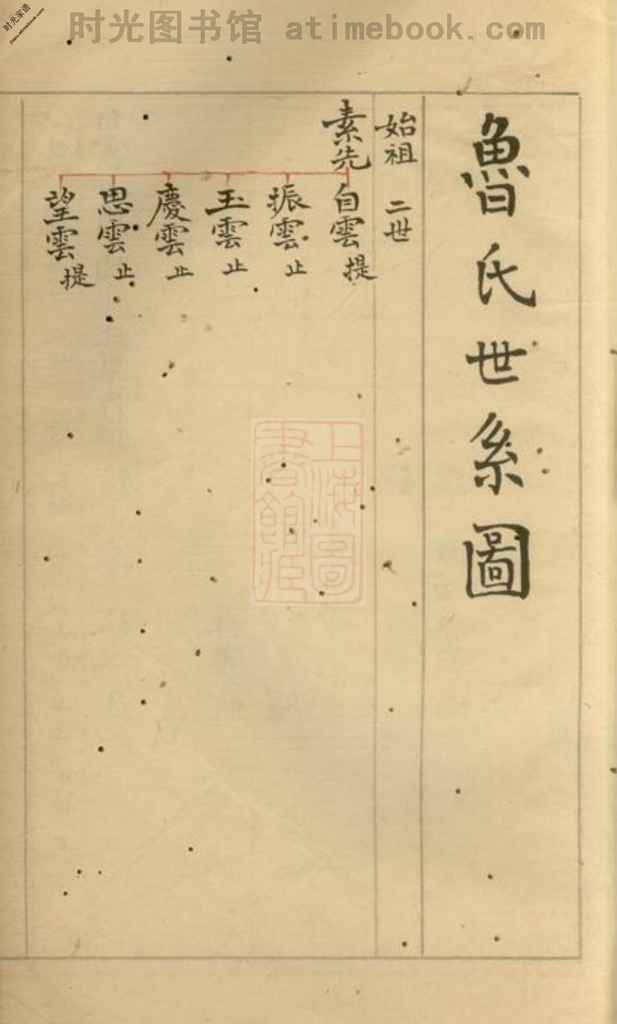 时光图书馆 atimebook.com
时光家谱
魯氏世系圖
始祖 二世
素先
自雲 提
振雲 止
玉雲 止
慶雲 止
思雲 止
望雲 提
上海圖書館藏